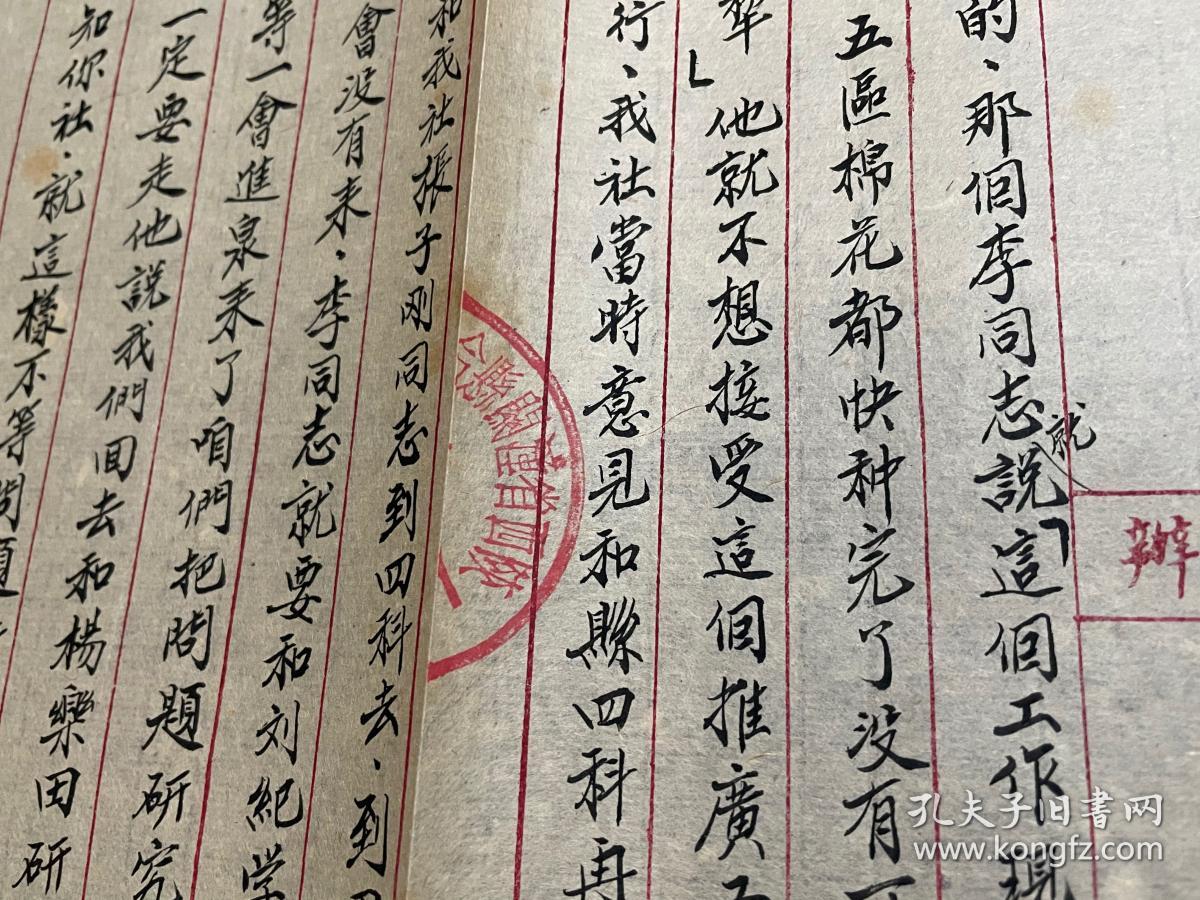 的、那個李同志就說「這個工作現
五區棉花都快种完了没有
犂」他就不想接受這個推廣
行、我社當時意見和縣四科再
和我社張子刚同志到四科去、到四
會没有来、李同志就要和刘紀堂
等一會進泉来了咱們把問題研究
一定要走他說我們回去和楊樂田研
知你社、就這樣不等問題
辦
陝西省
孔夫子旧书网
www.kongfz.com